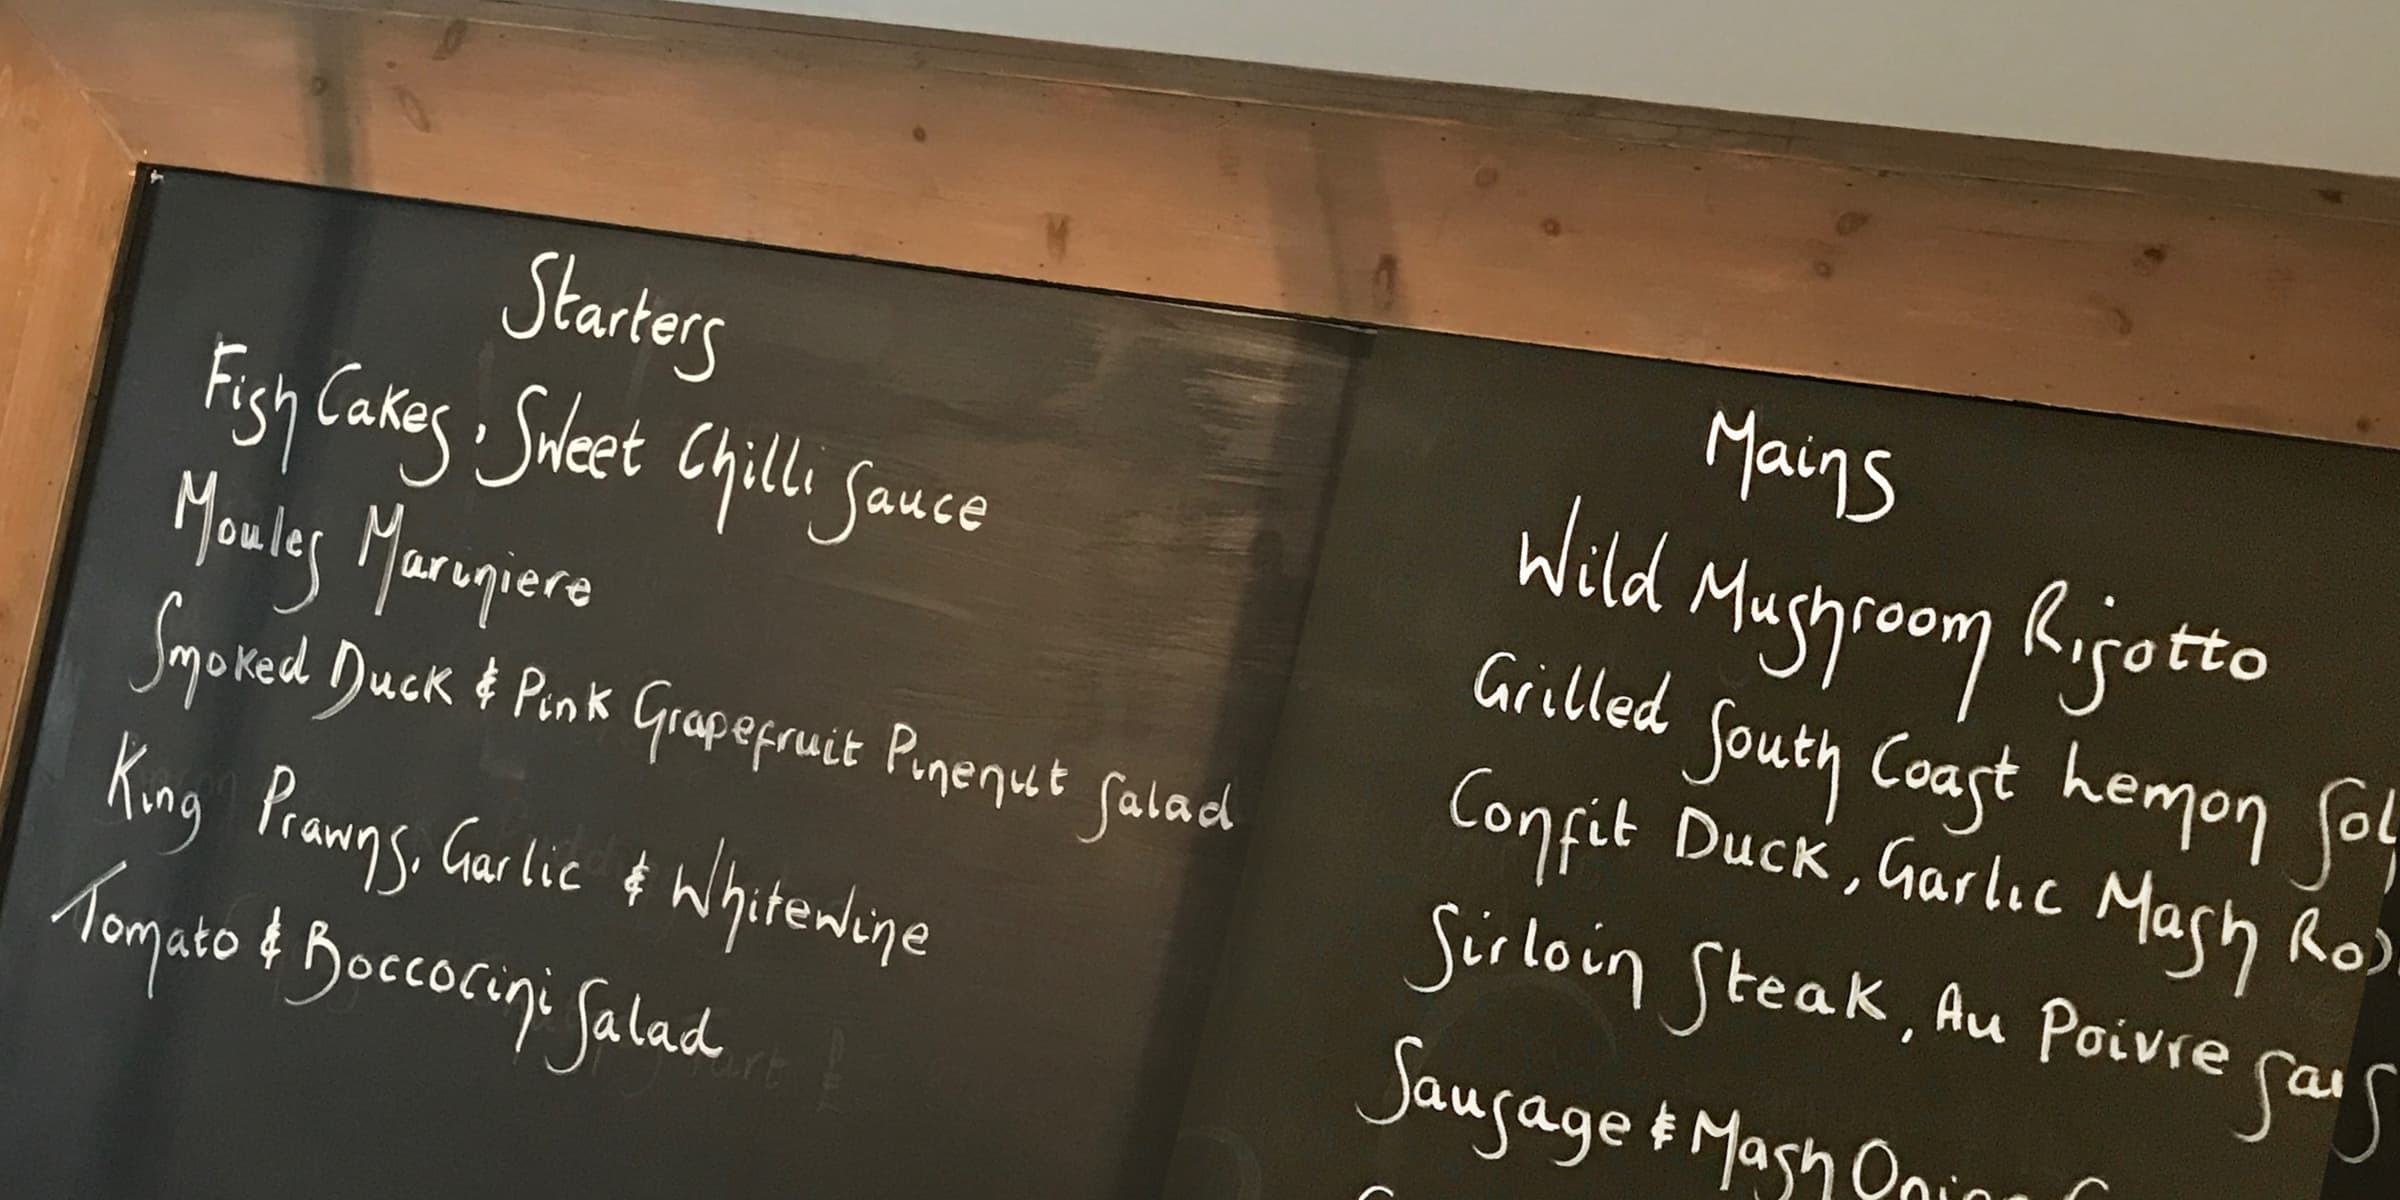 Starters
Fish Cakes, Sweet Chilli Sauce
Moules Mariniere
Smoked Duck & Pink Grapefruit Pinenut Salad
King Prawns, Garlic & Whitewine
Tomato & Boccocini Salad
Mains
Wild Mushroom Risotto
Grilled South Coast Lemon
Confit Duck, Garlic Mash
Sirloin Steak, Au Poivre
Sausage & Mash